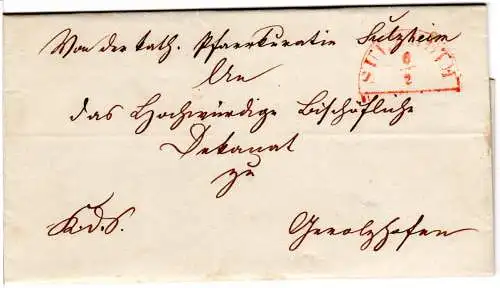 Von der kath. Pfarrkuratie Sulzheim
An
das Hochwürdige Bischöfliche
Dekanat
zu
K. d. S.
Gerolzhofen
6
2